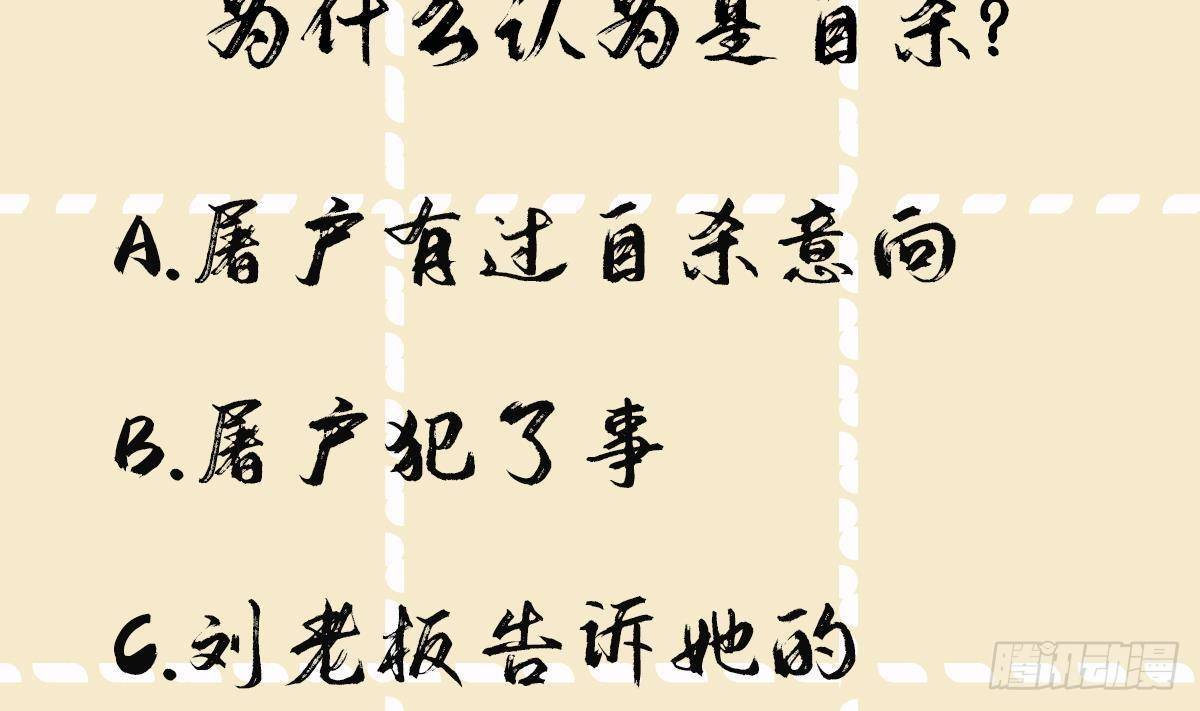 为什么认为是自杀?
A.屠户有过自杀意向
B.屠户犯了事
C.刘老板告诉她的
腾讯动漫